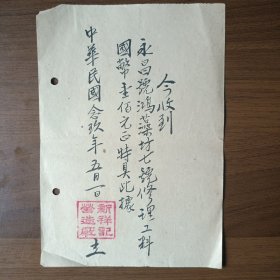 今收到
永昌號鴻葉坊七號修理工料
國幣壹佰元正特具此據
中華民國念玖年五月一日
新祥記
營造廠
立